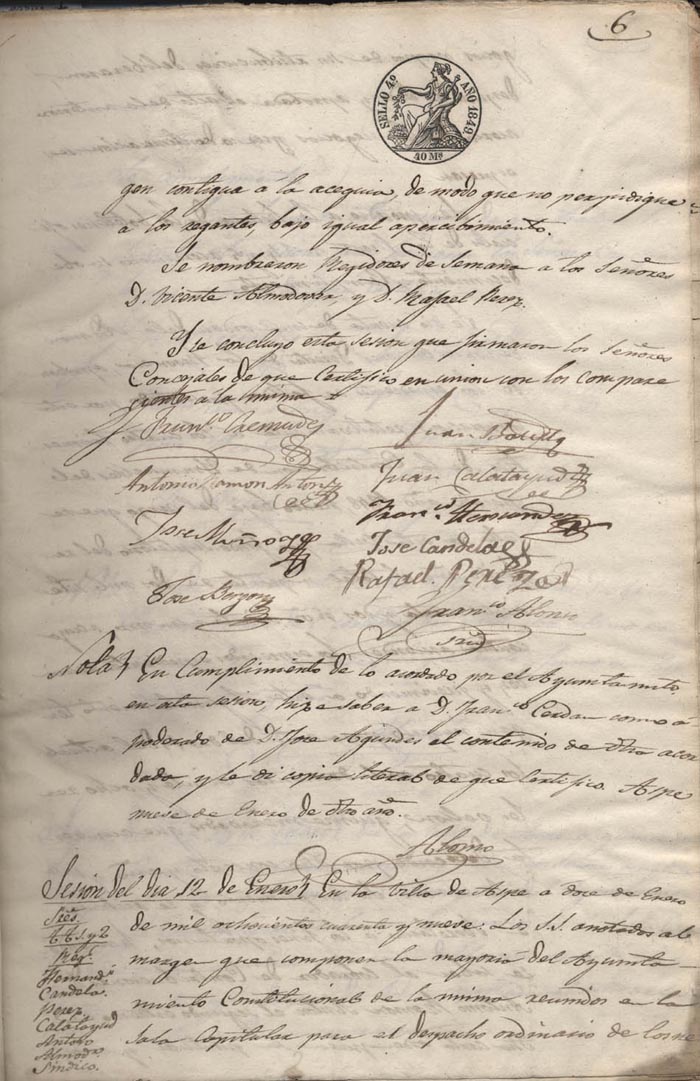 6
SELLO 4º AÑO 1849
40 Ms
gen contigua à la acequia, de modo que no perjudique
à los regantes, bajo igual apercibimiento.
Se nombraron Regidores de Semana a los Señores
D. Vicente Almodovar y D. Rafael Perez.
Y se concluyo esta sesion que firmaron los Señores
Concejales de que Certifico en union con los compare
cientes a la misma
Franco Cremades
Juan
Antonio Ramon Antonio
Juan Calatayud
Jose Muñoz
Franco Hernandez
Jose Candela
Rafael Perez
Jose
Franco Alonso
Srio
Nota En Cumplimiento de lo acordado por el Ayuntamto
en esta sesion, hize saber a D. Franco Cerdan como a
poderado de D. Jose el contenido de dho acor
dado, y le di copia literal de que Certifico. Aspe
nueve de Enero de dho año.
Alonso
Sesion del dia 12 de Enero En la Villa de Aspe a doce de Enero
de mil ochocientos cuarenta y nueve: Los S.S. anotados al
margen que componen la mayoria del Ayunta-
miento Constitucional de la misma reunidos en la
sala Capitular para el despacho ordinario de los ne
Sres
tts 1 y 2
Regs
Hernandz
Candela
Perez
Calatayud
Antono
Almodr
Sindico.